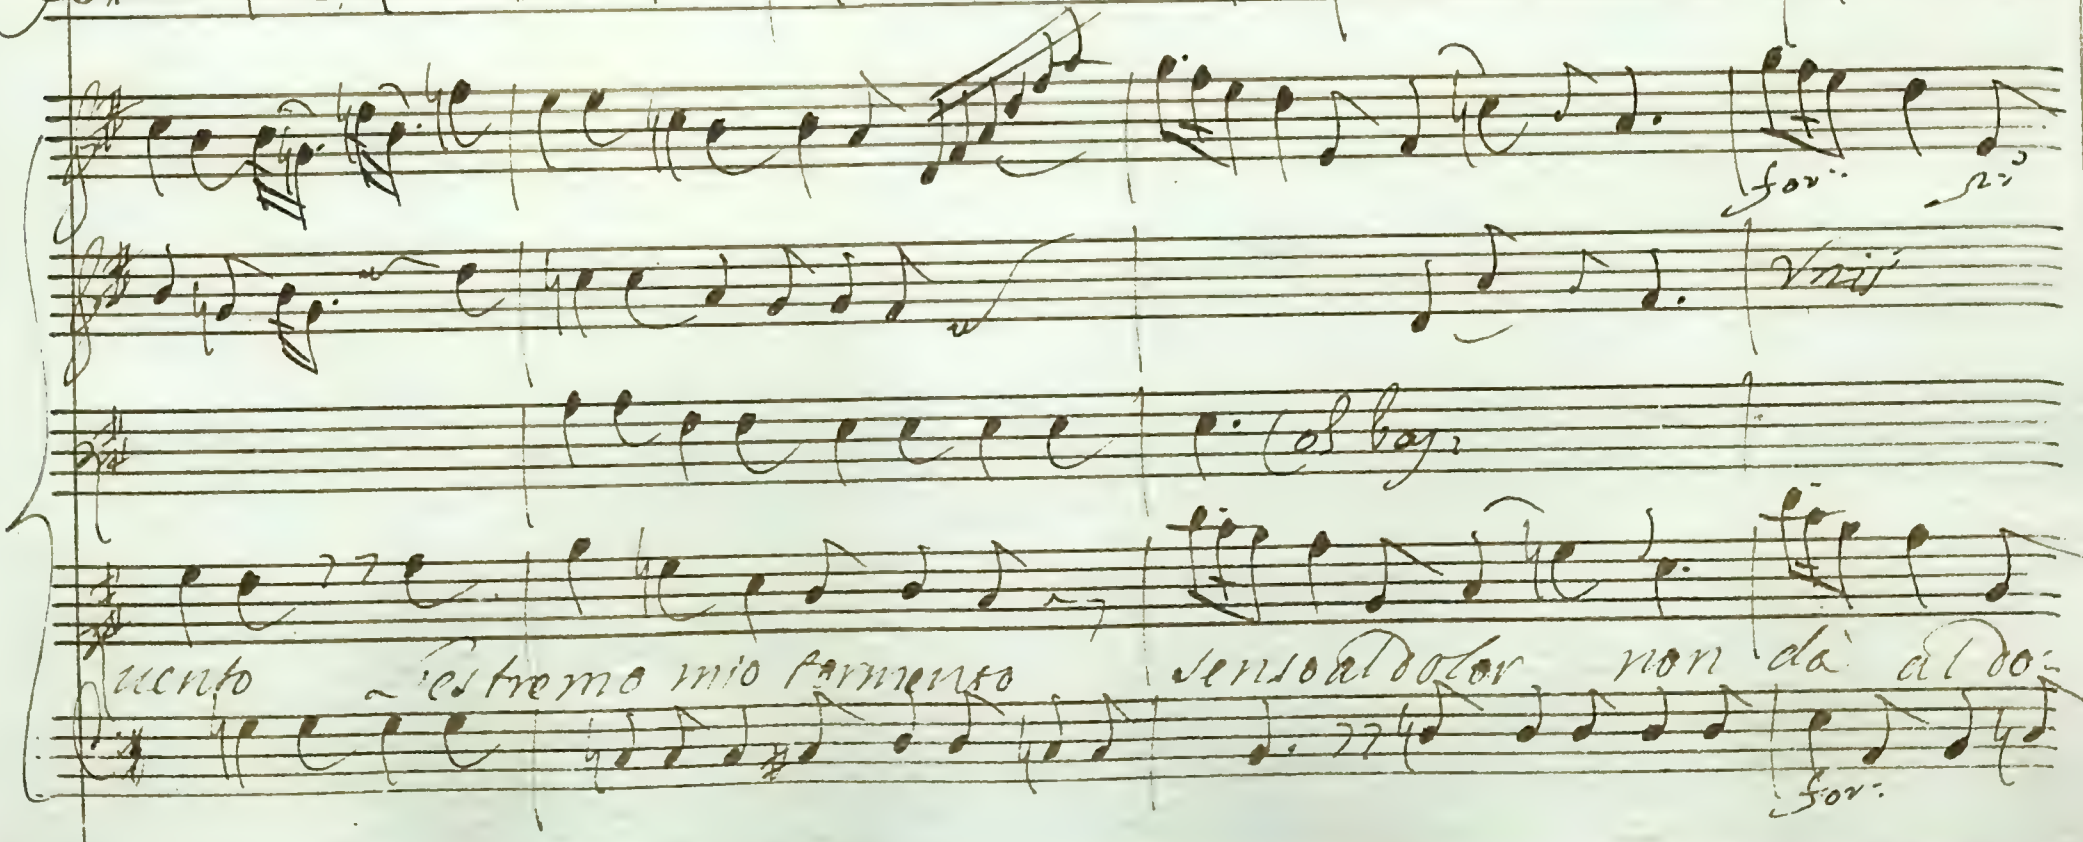 for: pi:
Vnis
Col bas:
uento L'estremo mio tormento senso al dolor non dà al do:
for: